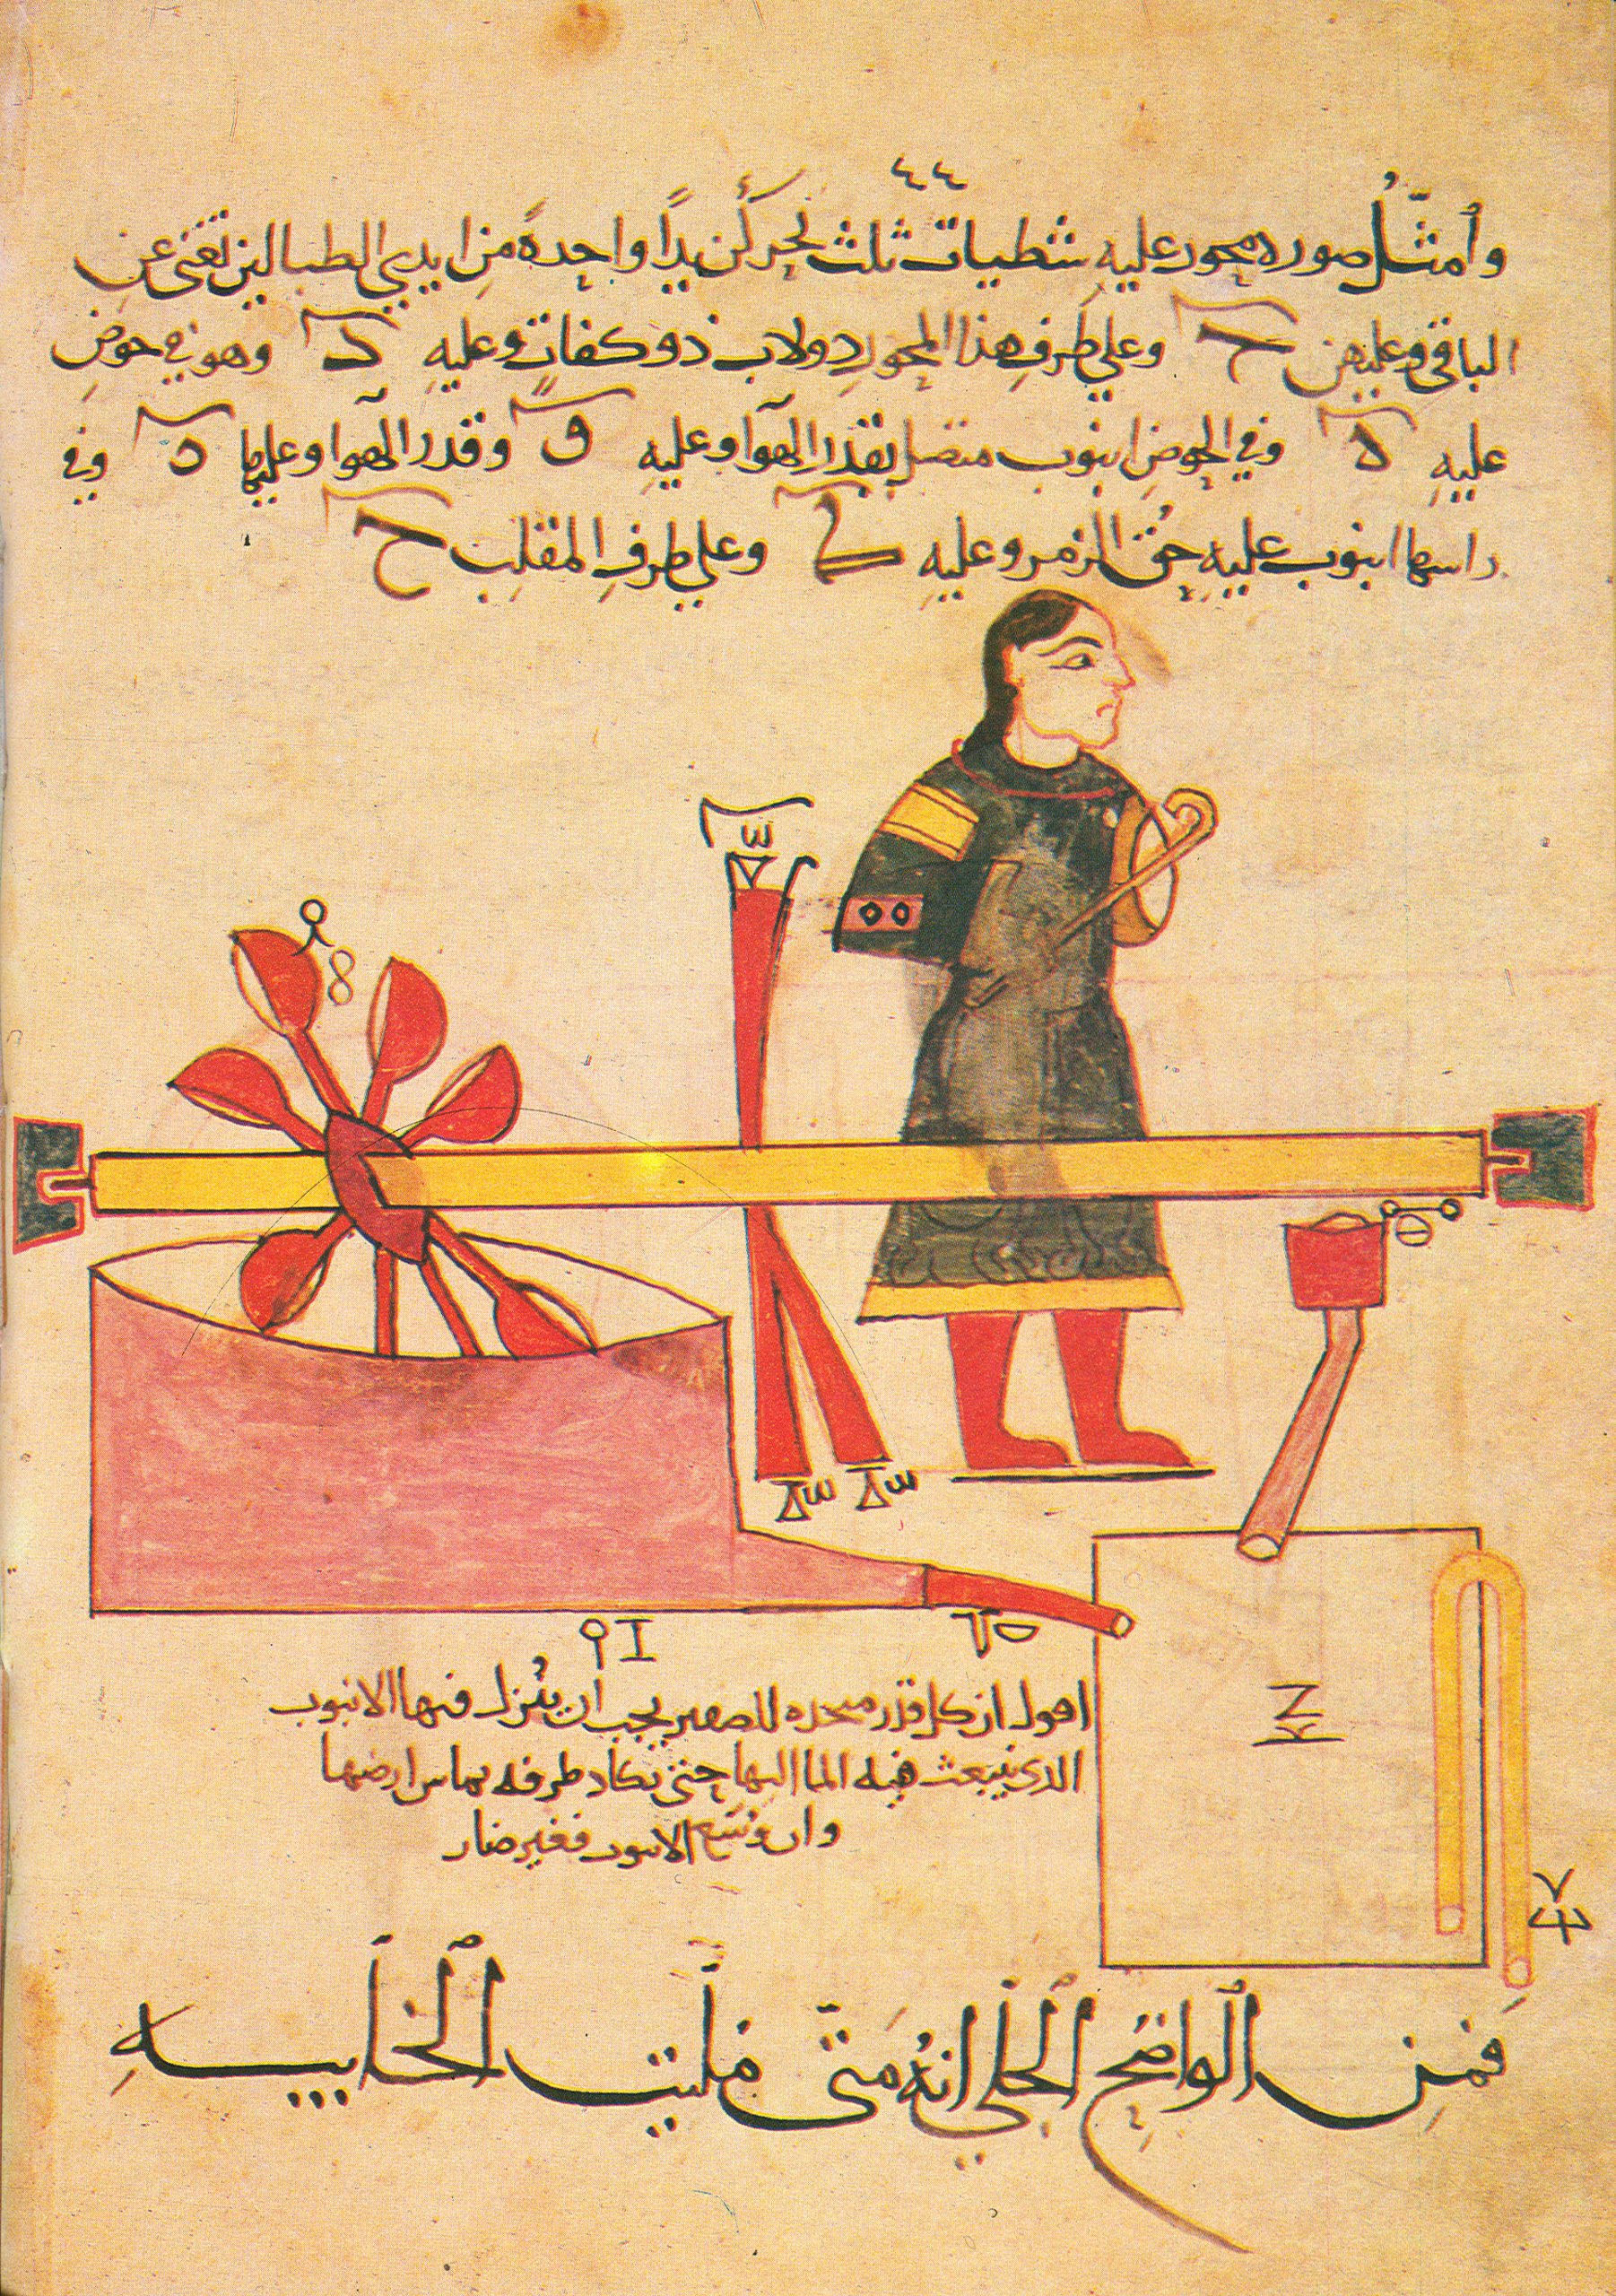 ٤٤
وأمثّلُ صوره محور عليهِ شطيات ثلث لتحركن يدًا واحدةً مِن ايدي الطبالين تغنى عن
الباقي وعليهن ح وعلي طرفِ هذا المحورِ دولاب ذو كفاتٍ وعليهِ د وهو في حوضِ
عليهِ ه وفي الحوضِ انبوب متصل بقدر الهوآ وعليهِ و وقدر الهوآ وعليها ن وفي
راسها انبوب عليهِ حُق الزمر وعليهِ ك وعلي طرفِ المقلب ح
اقول ان كل قدر متخذه للصفير يجب ان يُنزل فيها الانبوب
الذي ينبعث فيه الما اليها حتى يكاد طرفه يماس ارضها
وان وُسّع الانبوب فغير ضار
فمِن الواضح الجلي انهُ متى مليت الخابيه